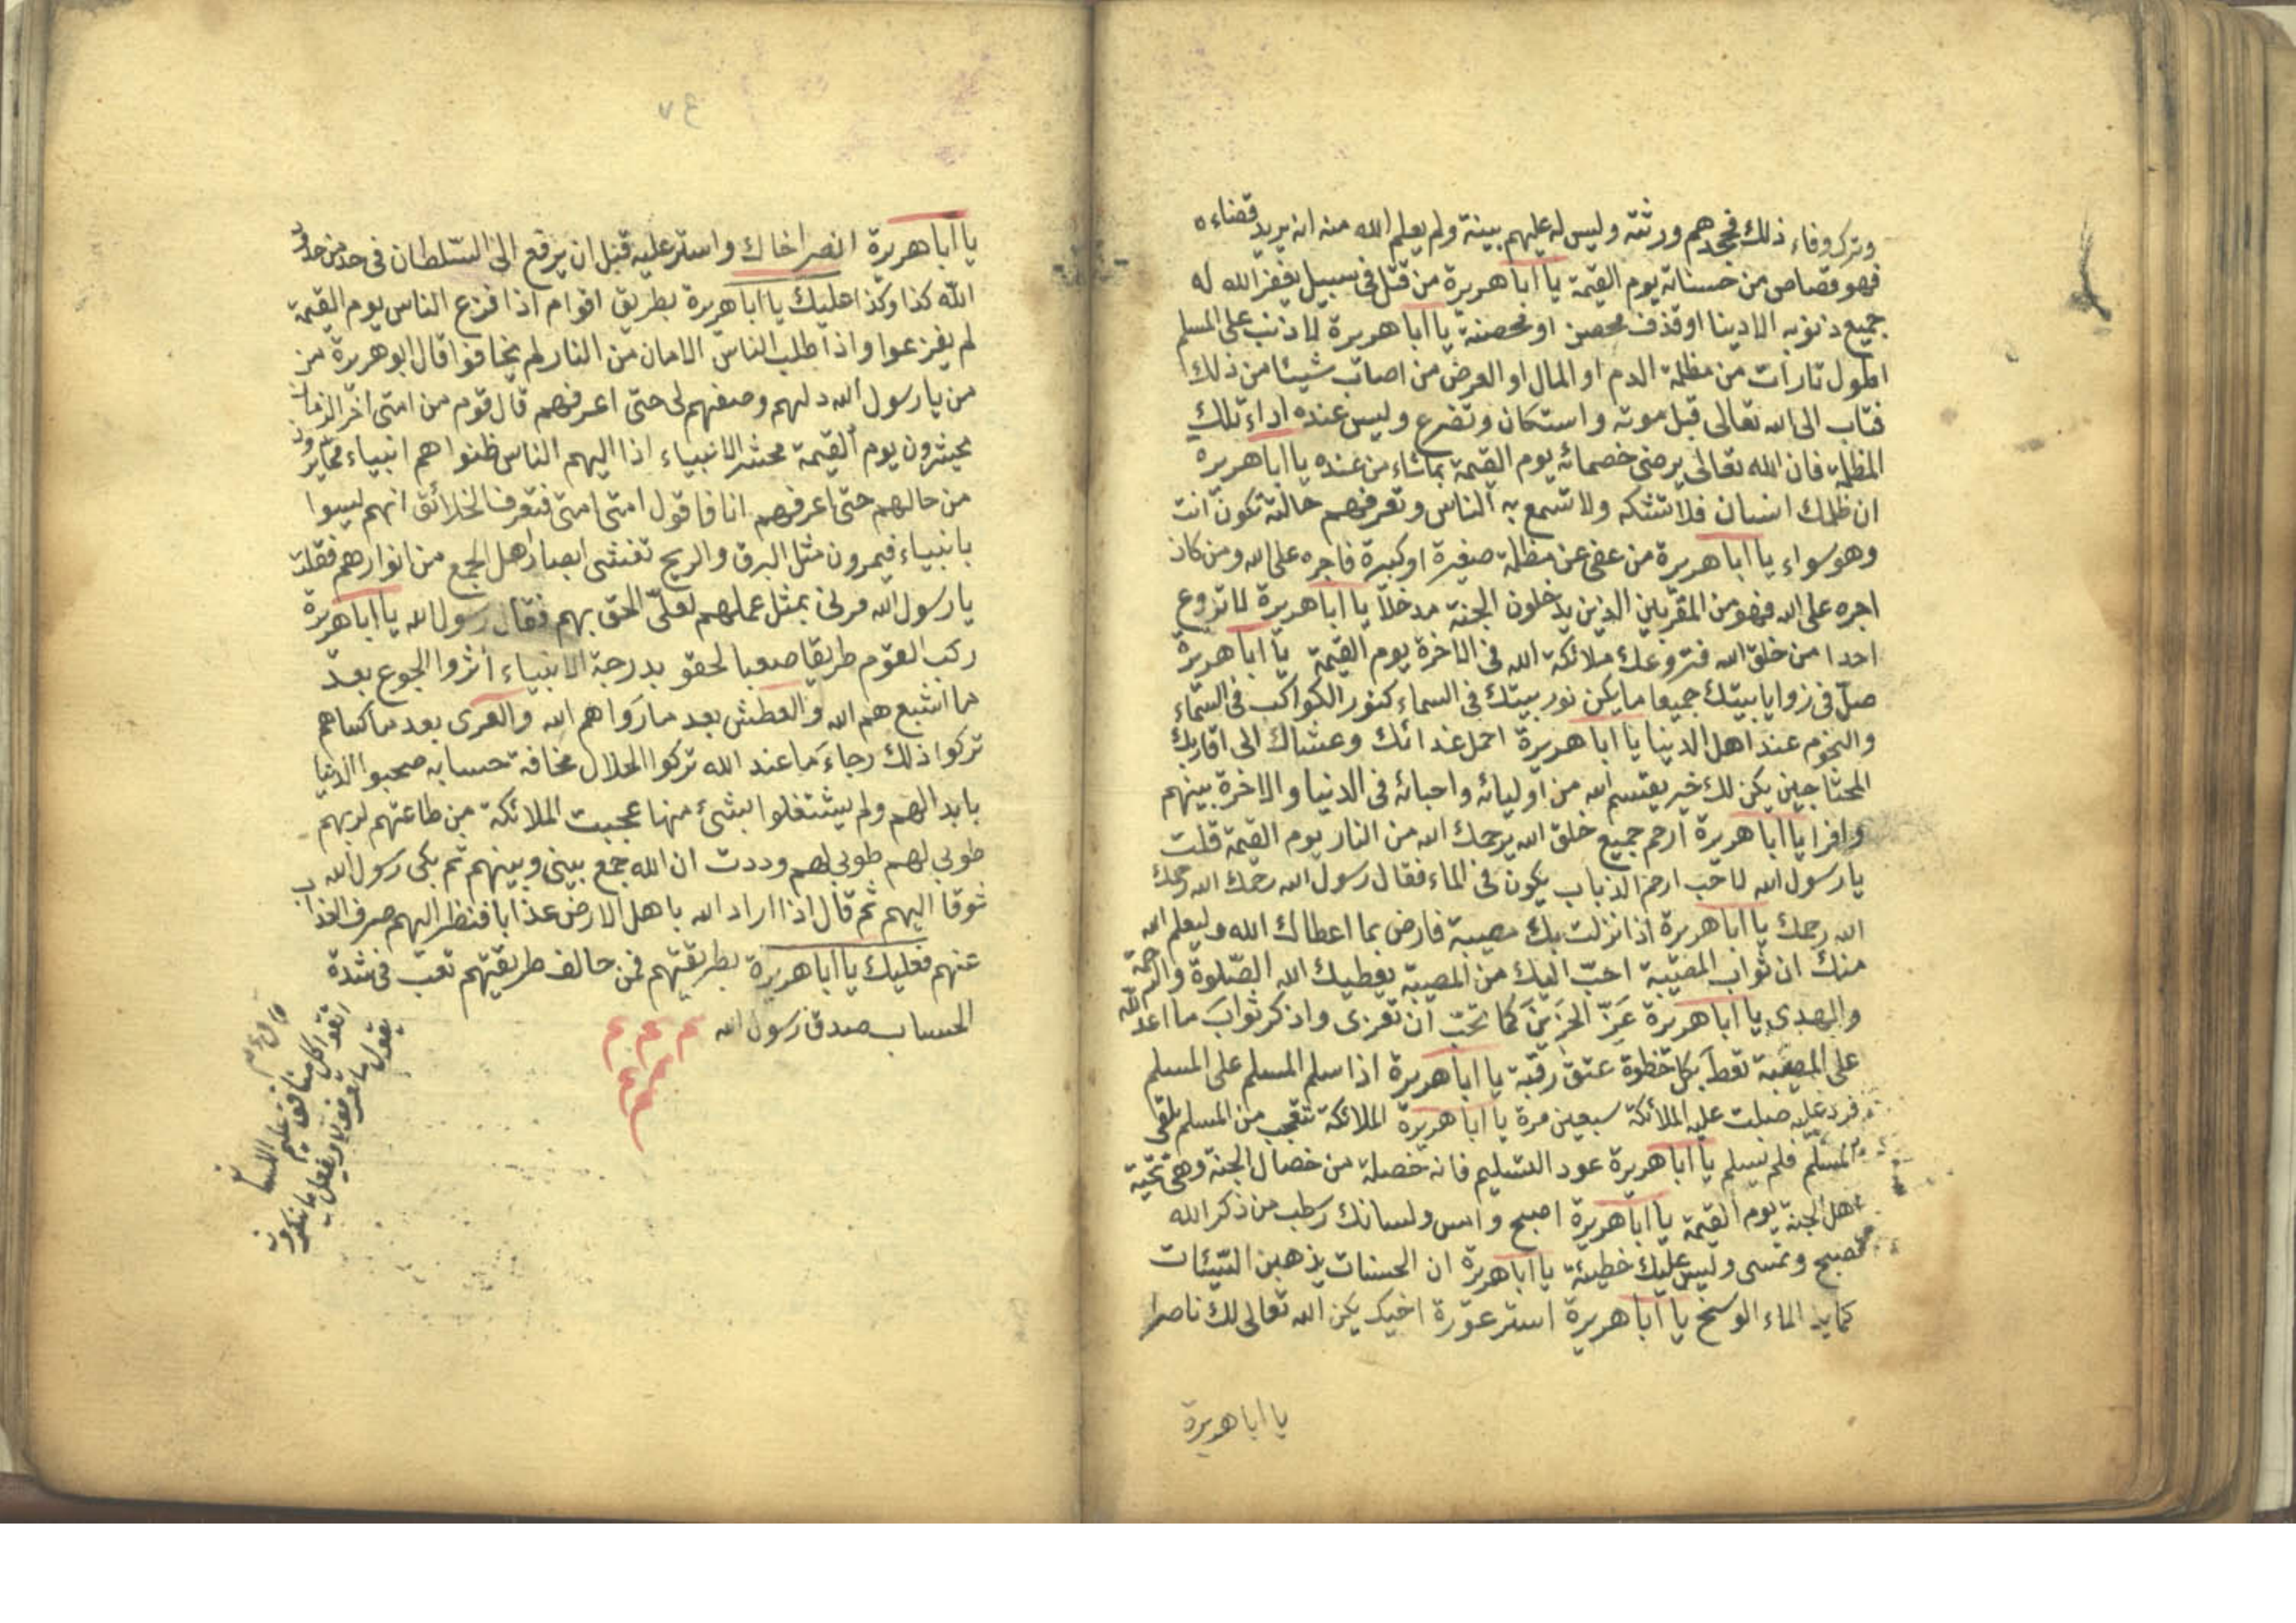 وترك وفاء ذلك فجحدهم ورثته وليس له عليهم بينة ولم يعلم الله منه انه يريد قضاءه
فهو قصاص من حسناته يوم القيمة يا اباهريرة من قتل فى سبيل يغفر الله له
جميع ذنوبه الا دينا او قذف محصن او محصنة يا اباهريرة لا ذنب على المسلم
اطول تارات من مظلمة الدم او المال او العرض من اصاب شيئا من ذلك
فتاب الى الله تعالى قبل موته واستكان وتضرع وليس عنده اداء تلك
المظلمة فان الله تعالى يرضى خصمائه يوم القيمة بماشاء من عنده يا اباهريرة
ان ظلمك انسان فلا تشكه ولا تسمع به الناس وتعرفهم حالته تكون انت
وهو سواء يا اباهريرة من عفى عن مظلمة صغيرة او كبيرة فاجره على الله ومن كان
اجره على الله فهو من المقربين الذين يدخلون الجنة مدخلا يا اباهريرة لا تروع
احدا من خلق الله فتروعك ملائكة الله فى الاخرة يوم القيمة يا اباهريرة
صل فى زوايا بيتك جميعا مايكن نور بيتك فى السماء كنور الكواكب فى السماء
والنجوم عند اهل الدنيا يا اباهريرة احمل غدائك وعشاك الى اقاربك
المحتاجين يكن لك خير يقسم الله من اوليائه واحبائه فى الدنيا والاخرة بينهم
وافرا يا اباهريرة ارحم جميع خلق الله يرحمك الله من النار يوم القيمة قلت
يا رسول الله لاحب ارحم الذباب يكون فى الماء فقال رسول الله رحمك الله رحمك
الله رحمك يا اباهريرة اذا نزلت بك مصيبة فارض بما اعطاك الله وليعلم الله
منك ان ثواب المصيبة احب اليك من المصيبة يعطيك الله الصلوة والرحمة
والهدى يا اباهريرة عز الحزين كما تحب ان تعزى واذكر ثواب ما اعد الله
على المصيبة تعط بكل خطوة عتق رقبة يا اباهريرة اذا سلم المسلم على المسلم
فرد عليه صلت عليه الملائكة سبعين مرة يا اباهريرة الملائكة تتعجب من المسلم يلقى
المسلم فلم يسلم يا اباهريرة عود التسليم فانه خصلة من خصال الجنة وهى تحية
اهل الجنة يوم القيمة يا اباهريرة اصبح وامس ولسانك رطب من ذكر الله
تصبح وتمسى وليس عليك خطيئة يا اباهريرة ان الحسنات يذهبن السيئات
كما الماء الوسخ يا اباهريرة استر عورة اخيك يكن الله تعالى لك ناصرا
يا اباهريرة
٧٤
يا اباهريرة انصر اخاك واستر عليه قبل ان يرفع الى السلطان فى حد من حدود
الله كذا وكذا عليك يا اباهريرة بطريق اقوام اذا فزع الناس يوم القيمة
لم يفزعوا واذا طلب الناس الامان من النار لم يخافوا قال ابو هريرة من
من يا رسول الله دلهم وصفهم لى حتى اعرفهم قال قوم من امتى اخر الزمان
يحشرون يوم القيمة محشر الانبياء اذا اليهم الناس ظنوا هم انبياء مما يرون
من حالهم حتى اعرفهم انا فاقول امتى امتى فتعرف الخلائق انهم ليسوا
بانبياء فيمرون مثل البرق والريح تغشى ابصار اهل الجمع من انوارهم فقلت
يا رسول الله مرنى بمثل عملهم لعلى الحق بهم فقال رسول الله يا اباهريرة
ركب القوم طريقا صعبا لحقو بدرجة الانبياء اثروا الجوع بعد
ما اشبعهم الله والعطش بعد ما رواهم الله والعرى بعد ما كساهم
تركوا ذلك رجاء ما عند الله تركوا الحلال مخافة حسابه صحبوا الدنيا
بابدانهم ولم يشتغلوا بشئ منها عجبت الملائكة من طاعتهم لربهم
طوبى لهم طوبى لهم وددت ان الله جمع بينى وبينهم ثم بكى رسول الله
شوقا اليهم ثم قال اذا اراد الله باهل الارض عذابا فنظر اليهم صرف العذاب
عنهم فعليك يا اباهريرة بطريقتهم فمن خالف طريقتهم تعب فى شدة
الحساب صدق رسول الله م م م
م م
م
قال عم
اتقوا كل منافق عليم اللسان
يقول ما تعرفون ويفعل ما تنكرون